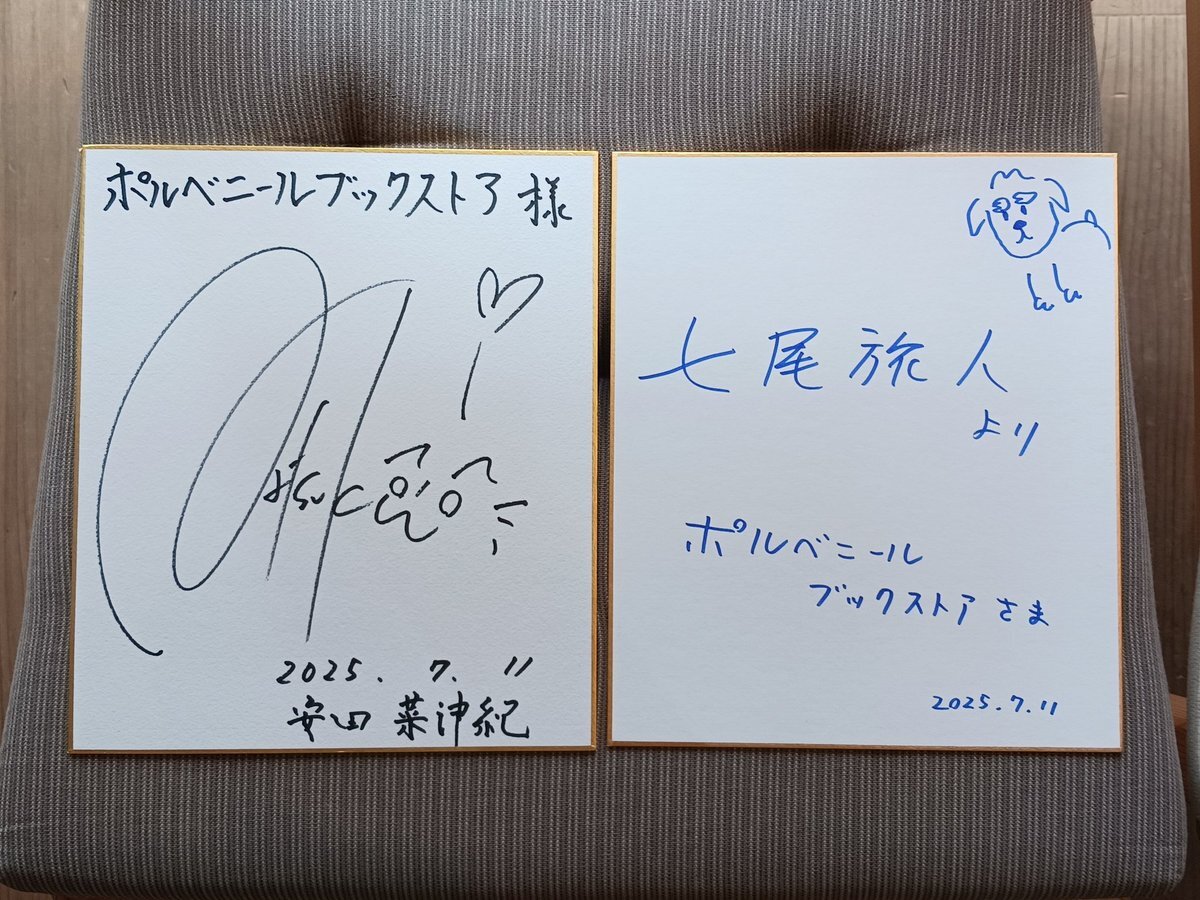 ポルベニールブックストア 様
2025. 7. 11
安田 菜津紀
七尾旅人
より
ポルベニール
ブックストア さま
2025.7.11